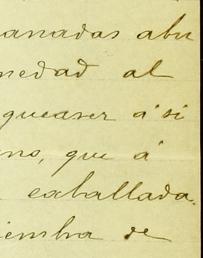 anadas abu
nedad al
queaser á si
ano, que á
caballada.
iembra de